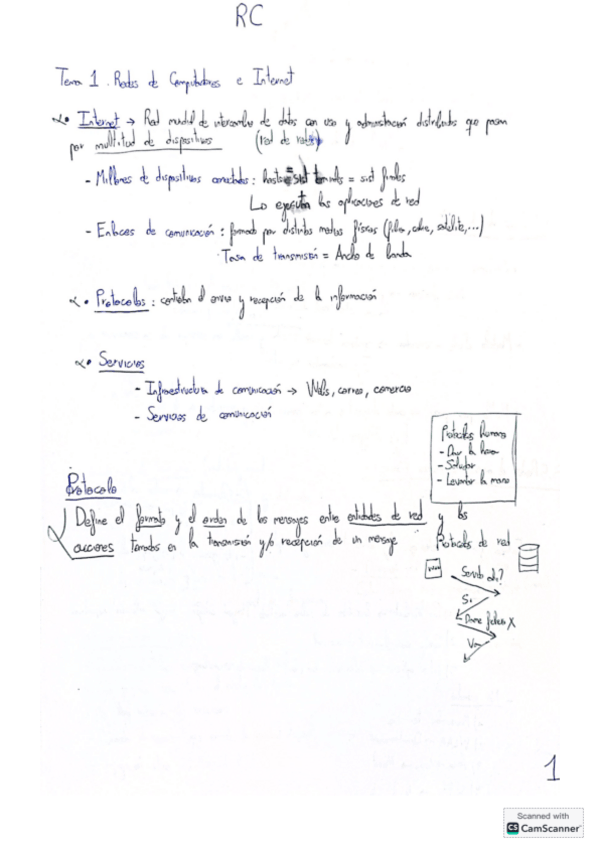 RC
Tema 1. Redes de Computadores e Internet
Internet → Red mundial de intercambio de datos con uso y administración distribuida que pasan
por multitud de dispositivos (red de redes)
- Millones de dispositivos conectados: hosts = sist terminales = sist finales
Lo ejecutan las aplicaciones de red
- Enlaces de comunicación: formado por distintos medios físicos (fibra, cobre, satélite,...)
Tasa de transmisión = Ancho de banda
• Protocolos: controlan el envío y recepción de la información
• Servicios
- Infraestructura de comunicación → Webs, correo, comercio
- Servicios de comunicación
Protocolos humanos
- Dar la hora
- Saludar
- Levantar la mano
Protocolo
Define el formato y el orden de los mensajes entre entidades de red y las
acciones tomadas en la transmisión y/o recepción de un mensaje
Protocolos de red
Si
Dame fichero X
1
Scanned with
CS CamScanner